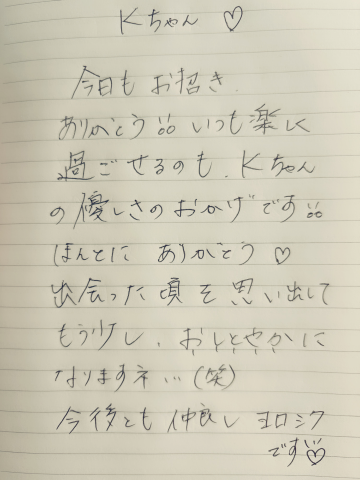 Kちゃん ♡
今日も お招き
ありがとう!! いつも楽しく
過ごせるのも、Kちゃん
の優しさのおかげです!!
ほんとに ありがとう ♡
出会った頃を思い出して
もう少し、おしとやかに
なりますネ…(笑)
今後とも 仲良し ヨロシク
です!!♡